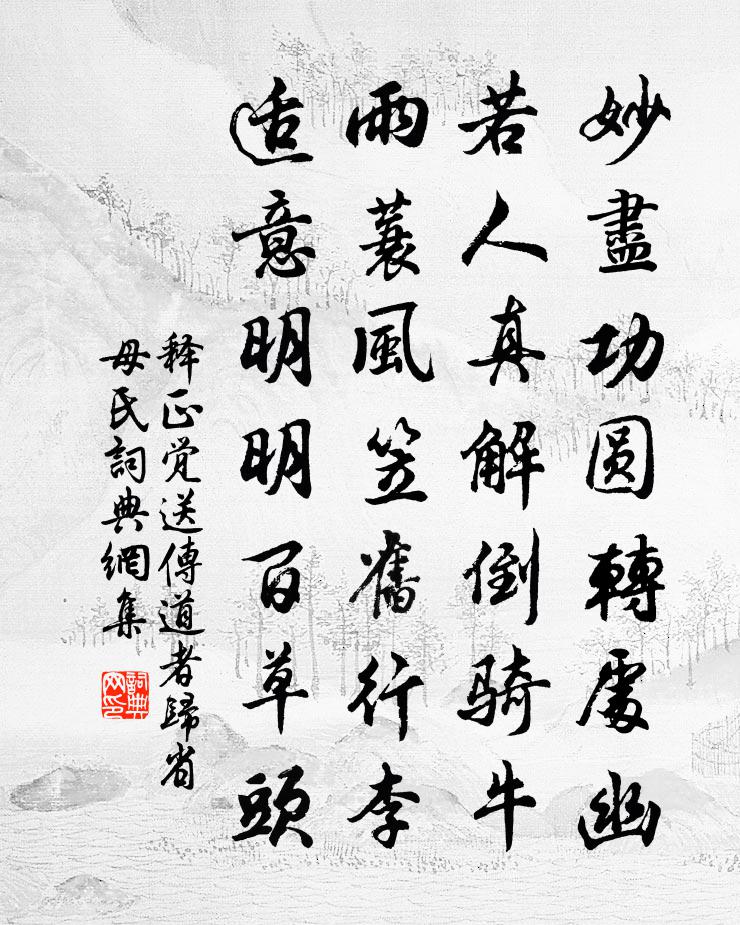 妙盡功圓轉處幽
若人真解倒騎牛
雨蓑風笠舊行李
适意明明百草頭
釋正覺送傳道者歸省
母氏詞典網集
詞典网印